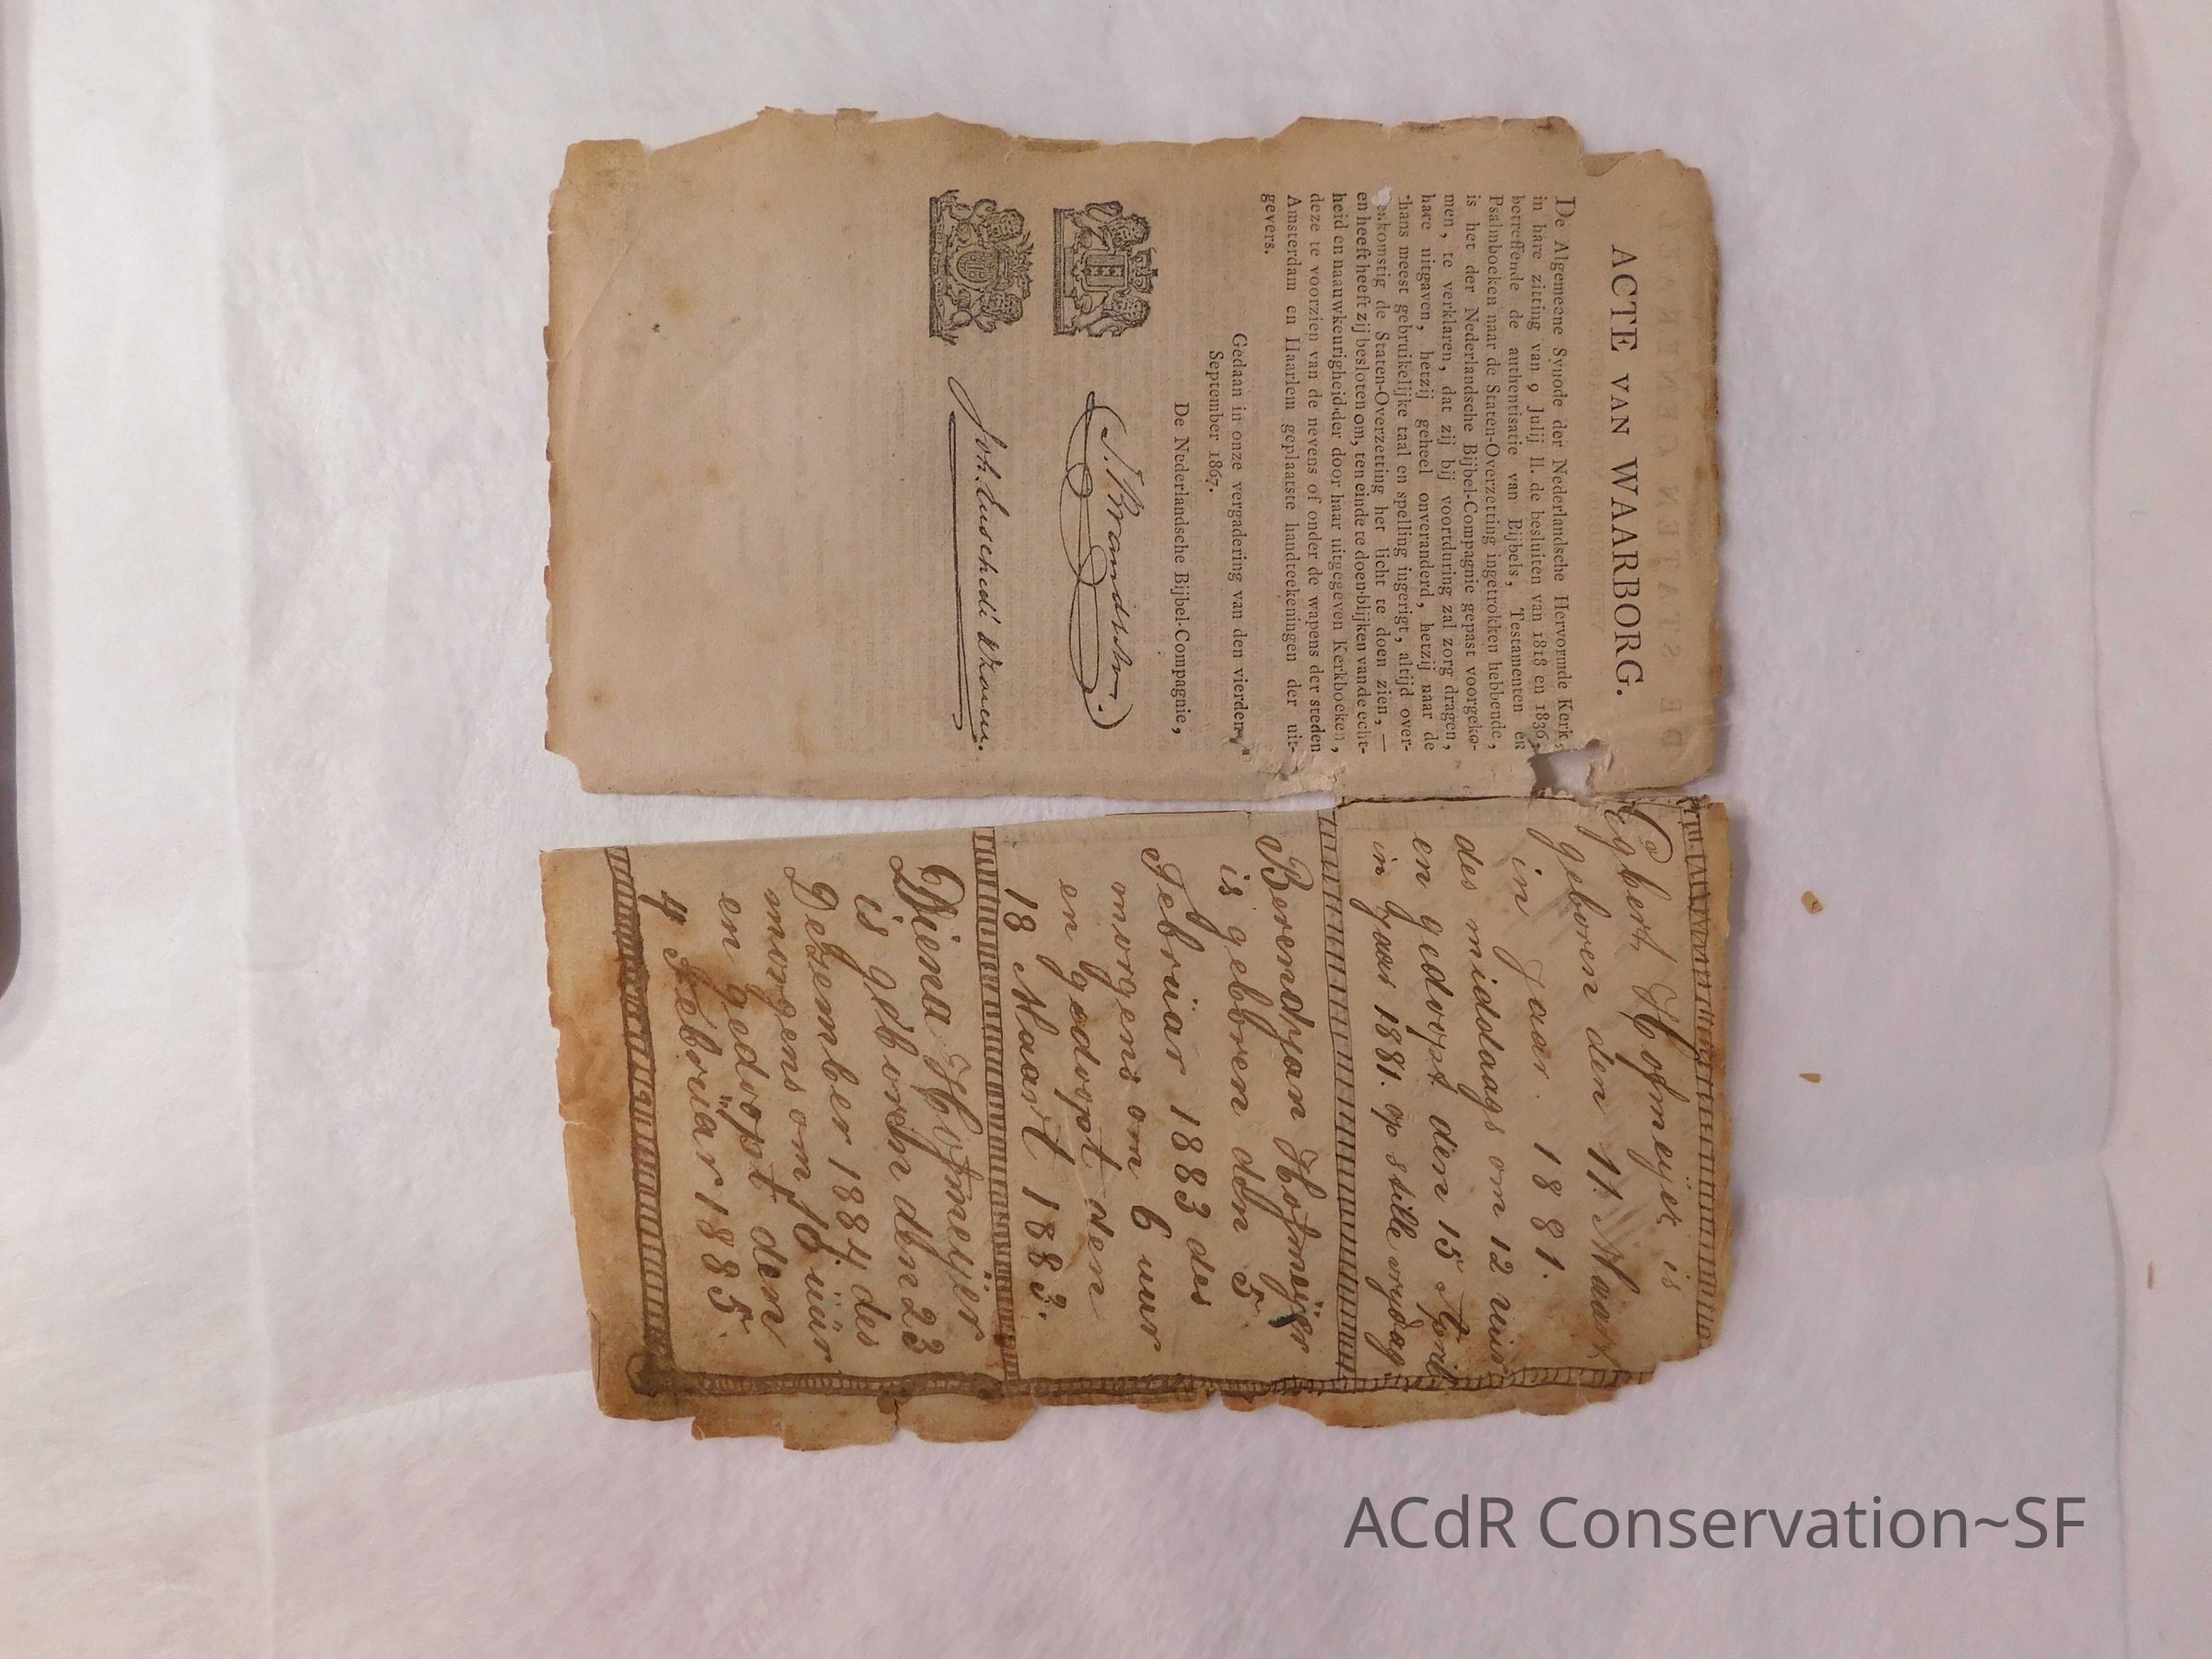 ACTE VAN WAARBORG.
De Algemeene Synode der Nederlandsche Hervormde Kerk,
in hare zitting van 9 Julij ll. de besluiten van 1818 en 1836,
betreffende de authentisatie van Bijbels, Testamenten en
Psalmboeken naar de Staten-Overzetting ingetrokken hebbende,
is het der Nederlandsche Bijbel-Compagnie gepast voorgeko-
men, te verklaren, dat zij bij voortduring zal zorg dragen,
hare uitgaven, hetzij geheel onveranderd, hetzij naar de
thans meest gebruikelijke taal en spelling ingerigt, altijd over-
enkomstig de Staten-Overzetting het licht te doen zien, —
en heeft heeft zij besloten om, ten einde te doen blijken van de echt-
heid en naauwkeurigheid der door haar uitgegeven Kerkboeken,
deze te voorzien van de nevens of onder de wapens der steden
Amsterdam en Haarlem geplaatste handteekeningen der uit-
gevers.
Gedaan in onze vergadering van den vierden
September 1867.
De Nederlandsche Bijbel-Compagnie,
J. Brandt
Joh. Enschedé
Egbert Hofmeijer is
geboren den 11 Maart
in Jaar 1881.
des middags om 12 uur
en gedoopt den 15 April
in Jaar 1881. op stille vrydag
Berendyan Hofmeijer
is geboren den 5
Februar 1883 des
morgens om 6 uur
en gedoopt den
18 Maart 1883.
Diena Hofmeijer
is geboren den 23
Dezember 1884 des
morgens om 6 uur
en gedoopt den
4 Februar 1885.
ACdR Conservation~SF